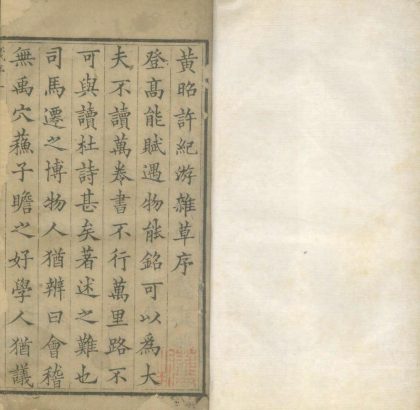 黃昭許紀游雜草序
登高能賦遇物能銘可以為大
夫不讀萬卷書不行萬里路不
可與讀杜詩甚矣著述之難也
司馬遷之博物人猶辨曰會稽
無禹穴蘓子瞻之好學人猶議